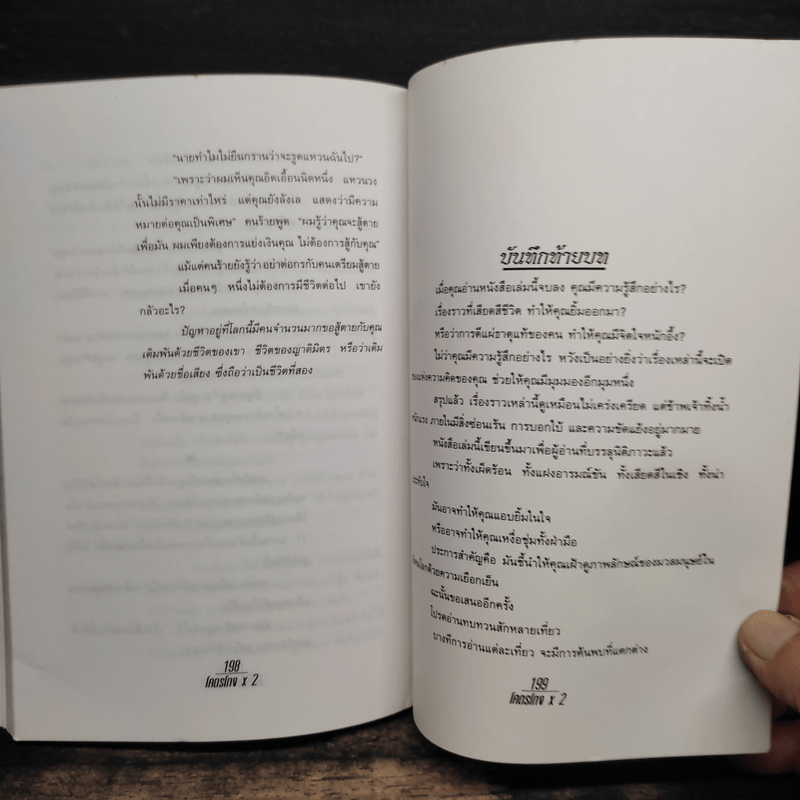 "นายทำไมไม่ยืนกรานว่าจะรูดแหวนฉันไป?"
"เพราะว่าผมเห็นคุณอิดเอื้อนนิดหนึ่ง แหวนวง
นั้นไม่มีราคาเท่าไหร่ แต่คุณยังลังเล แสดงว่ามีความ
หมายต่อคุณเป็นพิเศษ" คนร้ายพูด "ผมรู้ว่าคุณจะสู้ตาย
เพื่อมัน ผมเพียงต้องการแย่งเงินคุณ ไม่ต้องการสู้กับคุณ"
แม้แต่คนร้ายยังรู้ว่า อย่าต่อกรกับคนเตรียมสู้ตาย
เมื่อคนๆ หนึ่งไม่ต้องการมีชีวิตต่อไป เขายัง
กลัวอะไร?
ปัญหาอยู่ที่โลกนี้มีคนจำนวนมากขอสู้ตายกับคุณ
เดิมพันด้วยชีวิตของเขา ชีวิตของญาติมิตร หรือว่าเดิม
พันด้วยชื่อเสียง ซึ่งถือว่าเป็นชีวิตที่สอง
198
โคตรโกง x 2
บันทึกท้ายบท
เมื่อคุณอ่านหนังสือเล่มนี้จบลง คุณมีความรู้สึกอย่างไร?
เรื่องราวที่เสียดสีชีวิต ทำให้คุณยิ้มออกมา?
หรือว่าการตีแผ่ธาตุแท้ของคน ทำให้คุณมีจิตใจหนักอึ้ง?
ไม่ว่าคุณมีความรู้สึกอย่างไร หวังเป็นอย่างยิ่งว่าเรื่องเหล่านี้จะเปิด
แห่งความคิดของคุณ ช่วยให้คุณมีมุมมองอีกมุมหนึ่ง
สรุปแล้ว เรื่องราวเหล่านี้ดูเหมือนไม่เคร่งเครียด แต่ข้าพเจ้าทิ้งน้ำ
หนักแรง ภายในมีสิ่งซ่อนเร้น การบอกใบ้ และความขัดแย้งอยู่มากมาย
หนังสือเล่มนี้เขียนขึ้นมาเพื่อผู้อ่านที่บรรลุนิติภาวะแล้ว
เพราะว่าทั้งเผ็ดร้อน ทั้งแฝงอารมณ์ขัน ทั้งเสียดสีในเชิง ทั้งน่า
ประทับใจ
มันอาจทำให้คุณแอบยิ้มในใจ
หรืออาจทำให้คุณเหงื่อชุ่มทั้งฝ่ามือ
ประการสำคัญคือ มันชี้นำให้คุณเฝ้าดูภาพลักษณ์ของมวลมนุษย์ใน
ด้วยความเยือกเย็น
ฉะนั้นขอเสนออีกครั้ง
โปรดอ่านทบทวนสักหลายเที่ยว
บางทีการอ่านแต่ละเที่ยว จะมีการค้นพบที่แตกต่าง
199
โคตรโกง x 2